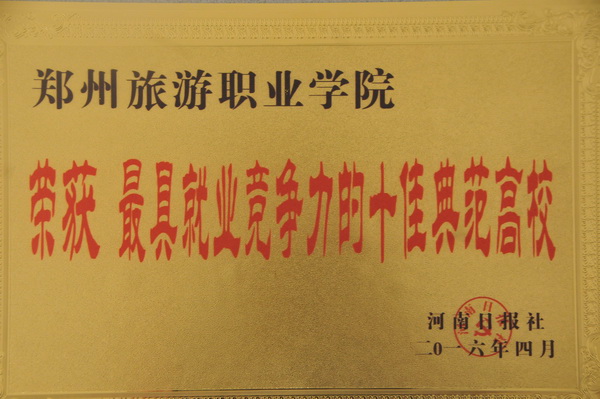 郑州旅游职业学院
荣获 最具就业竞争力的十佳典范高校
河南日报社
二〇一六年四月